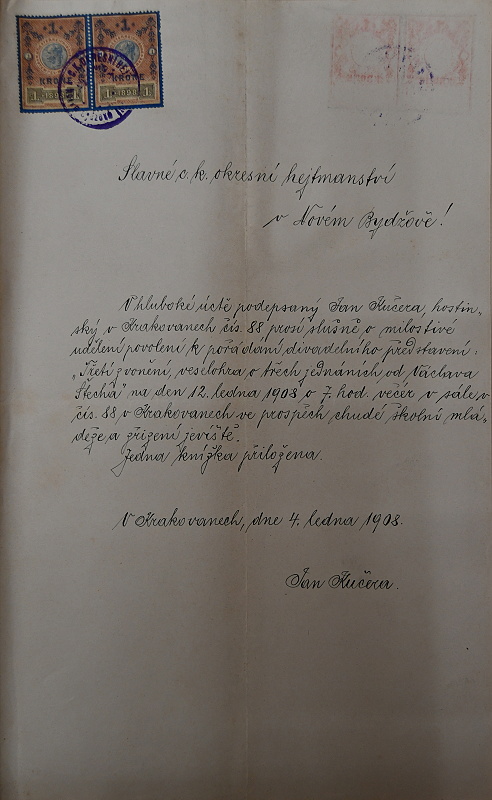 1 1
KRONE KRONE
1 1898 1 1 1898 1
Slavné c. k. okresní hejtmanství
v Novém Bydžově!
V hluboké úctě podepsaný Jan Kučera, hostin-
ský v Krakovanech čís. 88 prosí slušně o milostivé
udělení povolení k pořádání divadelního představení:
„Třetí zvonění, veselohra o třech jednáních od Václava
Štecha" na den 12. ledna 1908 o 7. hod. večer v sále v
čís. 88 v Krakovanech ve prospěch chudé školní mlá-
deže a zřízení jeviště.
Jedna knížka přiložena.
V Krakovanech, dne 4. ledna 1908.
Jan Kučera.